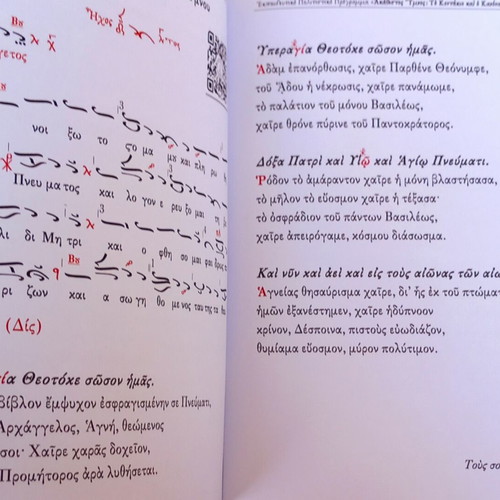 Ἦχος
Βου
γετος
νοι ξω το στο μα μου και πλη ρω
Πνευ μα τος και λο γον ε ρευ ξο μαι τη
λι δι Μη τρι και ο φθη σο μαι φαι δρως
Βου
ρι ζων και α σω γη θο με νος ταυ της τα
(Δίς)
Θεοτόκε σῶσον ἡμᾶς.
βίβλον ἔμψυχον ἐσφραγισμένην σε Πνεύματι,
Ἀρχάγγελος, Ἁγνή, θεώμενος
σοι· Χαῖρε χαρᾶς δοχεῖον,
Προμήτορος ἀρὰ λυθήσεται.
Ὑπεραγία Θεοτόκε σῶσον ἡμᾶς.
Ἀδὰμ ἐπανόρθωσις, χαῖρε Παρθένε Θεόνυμφε,
τοῦ ᾍδου ἡ νέκρωσις, χαῖρε πανάμωμε,
τὸ παλάτιον τοῦ μόνου Βασιλέως,
χαῖρε θρόνε πύρινε τοῦ Παντοκράτορος.
Δόξα Πατρὶ καὶ Υἱῷ καὶ Ἁγίῳ Πνεύματι.
Ῥόδον τὸ ἀμάραντον χαῖρε ἡ μόνη βλαστήσασα,
τὸ μῆλον τὸ εὔοσμον χαῖρε ἡ τέξασα·
τὸ ὀσφράδιον τοῦ πάντων Βασιλέως,
χαῖρε ἀπειρόγαμε, κόσμου διάσωσμα.
Καὶ νῦν καὶ ἀεὶ καὶ εἰς τοὺς αἰῶνας τῶν
Ἁγνείας θησαύρισμα χαῖρε, δι᾽ ἧς ἐκ τοῦ πτώματος
ἡμῶν ἐξανέστημεν, χαῖρε ἡδύπνοον
κρίνον, Δέσποινα, πιστοὺς εὐωδιάζον,
θυμίαμα εὔοσμον, μύρον πολύτιμον.
Τοὺς